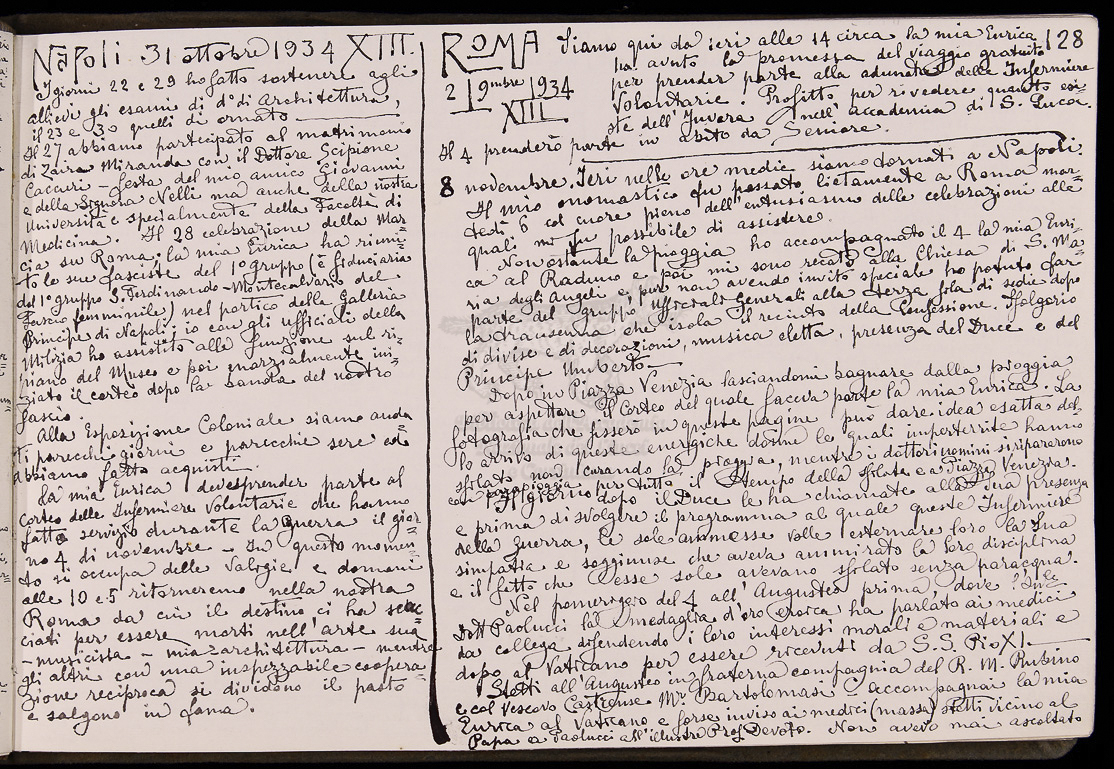 Napoli 31 ottobre 1934 XIII.
I giorni 22 e 29 ho fatto sostenere agli
allievi gli esami di d° di Architettura,
il 23 e 30 quelli di ornato
Il 27 abbiamo partecipato al matrimonio
di Zaira Miranda con il Dottore Scipione
Caccuri – festa del mio amico Giovanni
e della Signora Nelli ma anche della nostra
Università e specialmente della Facoltà di
Medicina. Il 28 celebrazione della Mar=
cia su Roma: la mia Enrica ha riuni=
to le sue fasciste del 1° gruppo (è fiduciaria
del 1° gruppo S. Ferdinando – Montecalvario del
Fascio femminile) nel portico della Galleria
Principe di Napoli: io con gli ufficiali della
Milizia ho assistito alla funzione sul ri=
piano del Museo e poi marzialmente ini=
ziato il corteo dopo la banda del nostro
fascio.
Alla Esposizione Coloniale siamo anda
ti parecchi giorni e parecchie sere ed
abbiamo fatto acquisti.
La mia Enrica deve prender parte al
corteo delle Infermiere Volontarie che hanno
fatto servizio durante la guerra il gior=
no 4 di novembre – In questo momen
to si occupa delle valigie e domani
alle 10 e 5 ritorneremo nella nostra
Roma da cui il destino ci ha scac
ciati per essere morti nell'arte sua
– musicista – mia – architettura – mentre
gli altri con una inspezzabile coopera
zione reciproca si dividono il pasto
e salgono in fama.
128
ROMA Siamo qui da ieri alle 14 circa la mia Enrica
2 9mbre 1934
XIII
ha avuto la promessa del viaggio gratuito
per prender parte alla adunata delle Infermiere
Volontarie. Profitto per rivedere quanto esi=
ste dell'Juvara nell'accademia di S. Luca.
Il 4 prenderò parte in abito da Seniore.
8 novembre. Ieri nelle ore medie siamo tornati a Napoli.
Il mio onomastico fu passato lietamente a Roma mar=
tedì 6 col cuore pieno dell'entusiasmo delle celebrazioni alle
quali mi fu possibile di assistere.
Nonostante la pioggia ho accompagnato il 4 la mia Enri=
ca al Raduno e poi mi sono recato alla Chiesa di S. Ma=
ria degli Angeli e, pur non avendo invito speciale ho potuto far
parte del gruppo ufficiali Generali alla terza fila di sedie dopo
la transenna che isola il recinto della Confessione. Folgorio
di divise e di decorazioni, musica eletta, presenza del Duce e del
Principe Umberto –
Dopo in Piazza Venezia lasciandomi bagnare dalla pioggia
per aspettare il Corteo del quale faceva parte la mia Enrica. La
fotografia che inserò in queste pagine può dare idea esatta del=
lo arrivo di queste energiche donne le quali imperterrite hanno
sfilato non curando la pioggia, mentre i dottori uomini si ripararono
con parapioggia per tutto il tempo della sfilata e a Piazza Venezia.
Il giorno dopo il Duce le ha chiamate alla Sua presenza
e prima di svolgere il programma al quale queste Infermiere
della guerra, le sole ammesse volle esternare loro la Sua
simpatia e soggiunse che aveva ammirato la loro disciplina
e il fatto che esse sole avevano sfilato senza paracqua.
Nel pomeriggio del 4 all'Augusteo prima, dove
Dott Paolucci la medaglia d'oro eroica ha parlato ai medici
da collega difendendo i loro interessi morali e materiali e
dopo al Vaticano per essere ricevuti da S.S. Pio XI. –
Stetti all'Augusteo in fraterna compagnia del R. M. Rubino
e col Vescovo Castrense Mr Bartolomasi accompagnai la mia
Enrica al Vaticano e forse inviso ai medici (massa) stetti vicino al
Papa e a Paolucci all'illustre Prof Devoto. Non avevo mai ascoltato